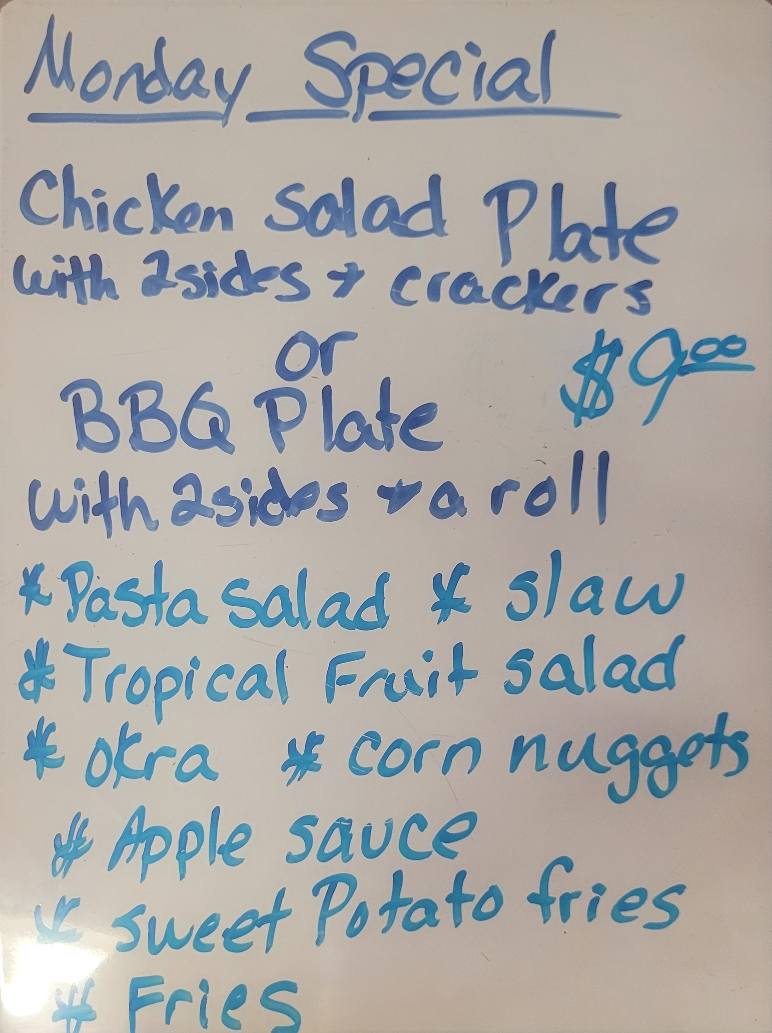 Monday Special
Chicken Salad Plate
with 2 sides + crackers
or
$9.00
BBQ Plate
with 2 sides + a roll
* Pasta salad * slaw
* Tropical Fruit salad
* okra * corn nuggets
* Apple sauce
* sweet Potato fries
* Fries